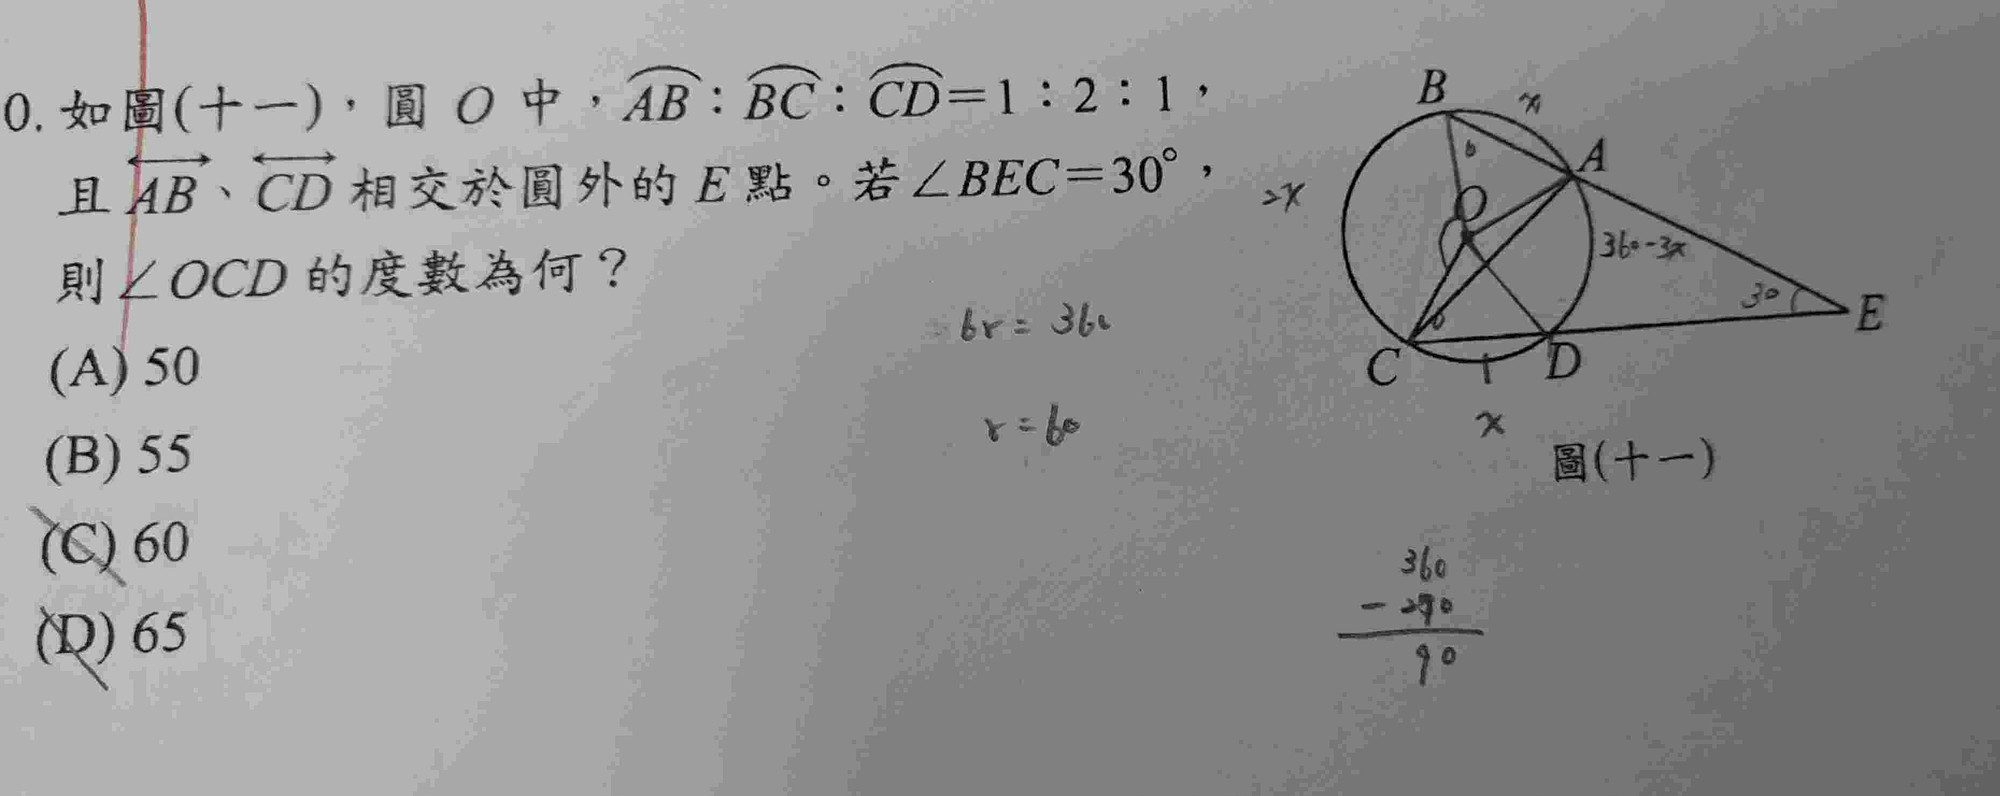 0. 如圖(十一)，圓 O 中，AB：BC：CD=1：2：1，
且 AB、CD 相交於圓外的 E 點。若∠BEC=30°，
則∠OCD 的度數為何？
(A) 50
(B) 55
(C) 60
(D) 65
B
x
A
b
O
2x
360-3x
30
E
C
D
x
圖(十一)
6r = 360
r = 60
360
- 290
90